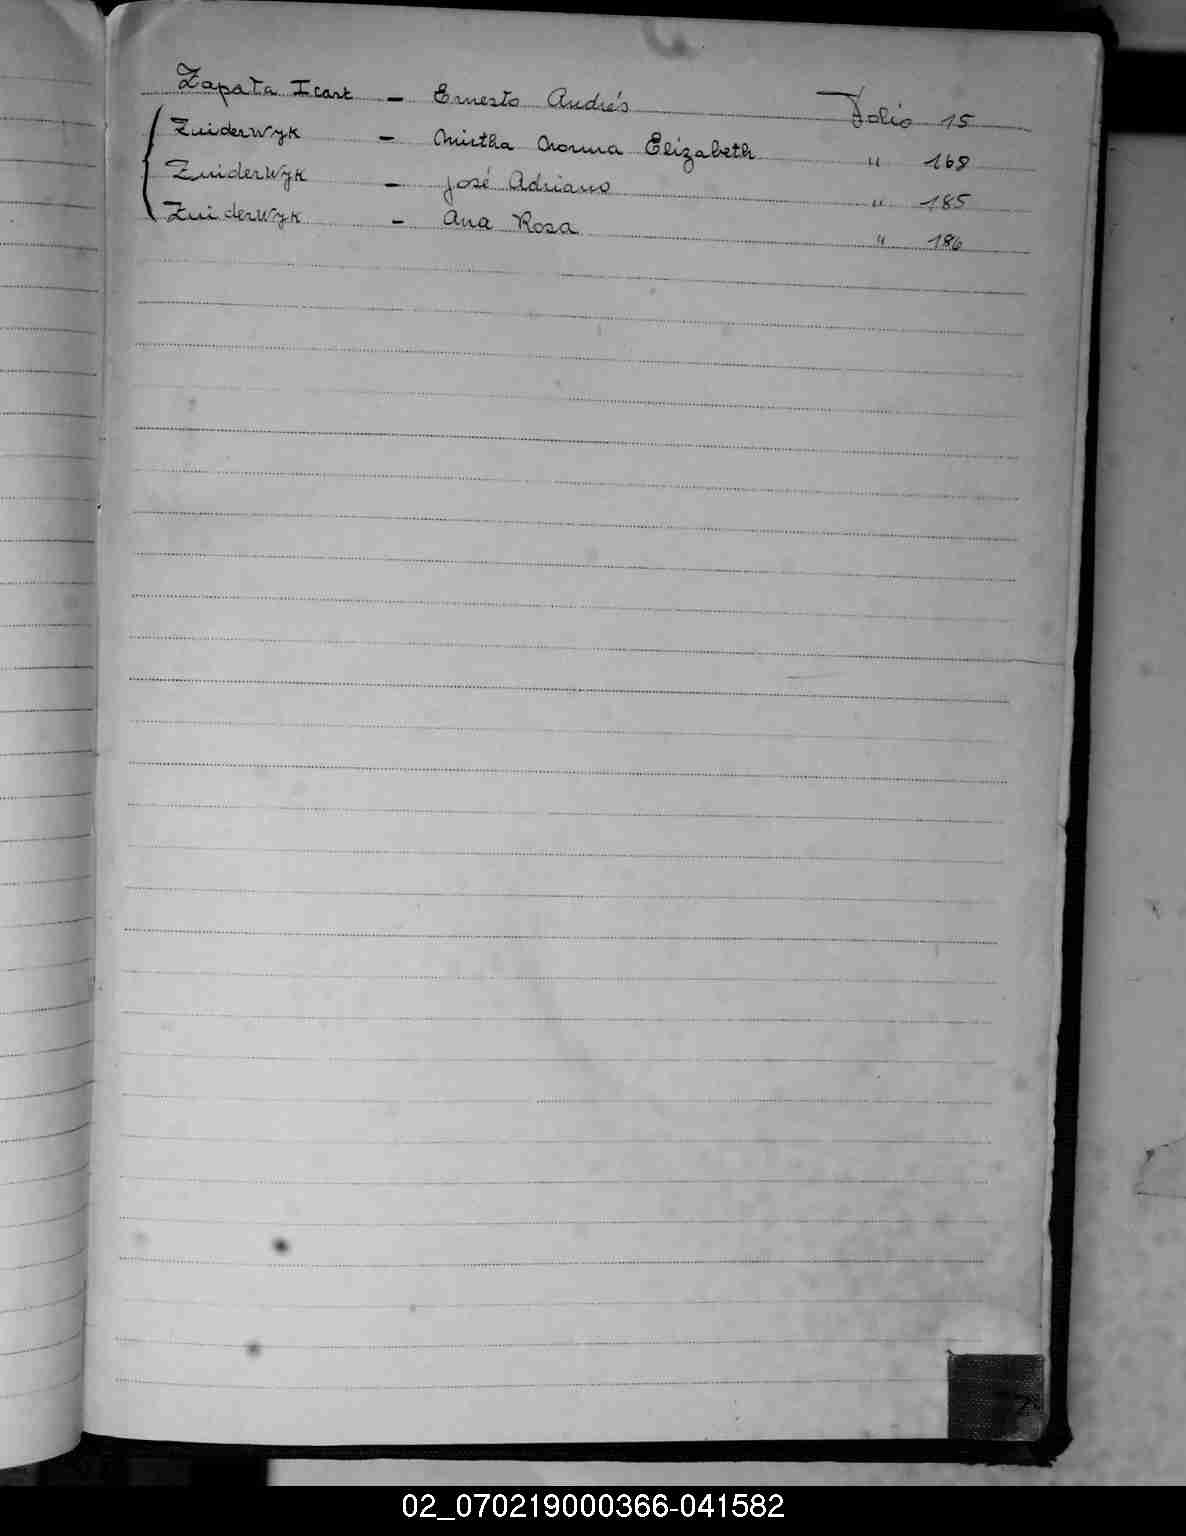 Zapata Icart - Ernesto Andrés Folio 15
Zuiderwyk - Mirtha Norma Elizabeth " 168
Zuiderwyk - José Adriano " 185
Zuiderwyk - Ana Rosa " 186
Z
02_070219000366-041582